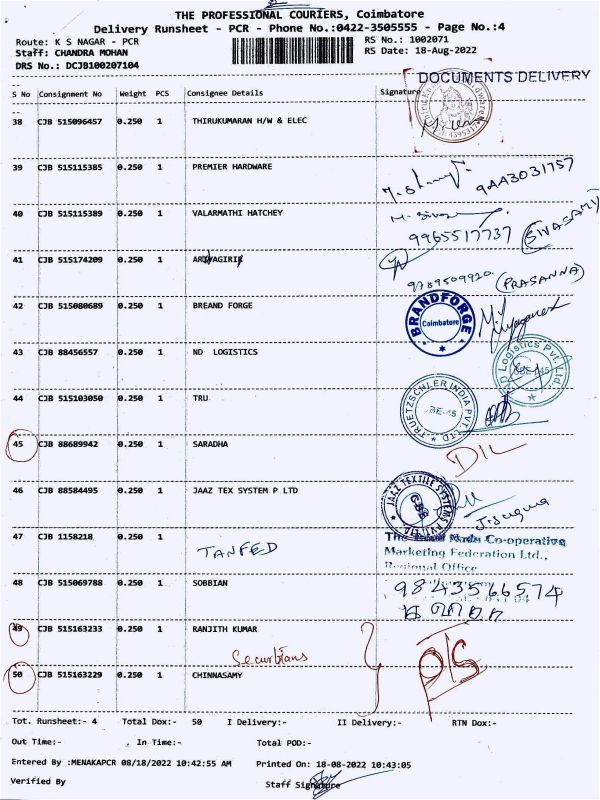 THE PROFESSIONAL COURIERS, Coimbatore
Delivery Runsheet - PCR - Phone No.:0422-3505555 - Page No.:4
Route: K S NAGAR - PCR
RS No.: 1002071
Staff: CHANDRA MOHAN
RS Date: 18-Aug-2022
DRS No.: DCJB100207104
DOCUMENTS DELIVERY
S No Consignment No Weight PCS Consignee Details Signature
38 CJB 515096457 0.250 1 THIRUKUMARAN H/W & ELEC
39 CJB 515115385 0.250 1 PREMIER HARDWARE
40 CJB 515115389 0.250 1 VALARMATHI HATCHEY
9965517737 (SIVASAMY)
41 CJB 515174209 0.250 1
9789509920 (PRASANNA)
42 CJB 515080689 0.250 1 BREAND FORGE
BRANDFORGE Coimbatore
43 CJB 88456557 0.250 1 ND LOGISTICS
D Logistics Pvt. Ltd.
44 CJB 515103050 0.250 1 TRU
TRUETZSCHLER INDIA PVT. LTD
45 CJB 88689942 0.250 1 SARADHA
D/L
46 CJB 88584495 0.250 1 JAAZ TEX SYSTEM P LTD
JAAZ TEXTILE SYSTEMS PVT. LTD. CBE
47 CJB 1158218 0.250 1 TANFED
Co-operative
Marketing Federation Ltd.,
Regional Office
48 CJB 515069788 0.250 1 SOBBIAN
9843566574
49 CJB 515163233 0.250 1 RANJITH KUMAR
O/S
50 CJB 515163229 0.250 1 CHINNASAMY
Tot. Runsheet:- 4 Total Dox:- 50 I Delivery:- II Delivery:- RTN Dox:-
Out Time:- In Time:- Total POD:-
Entered By :MENAKAPCR 08/18/2022 10:42:55 AM Printed On: 18-08-2022 10:43:05
Verified By Staff Signature